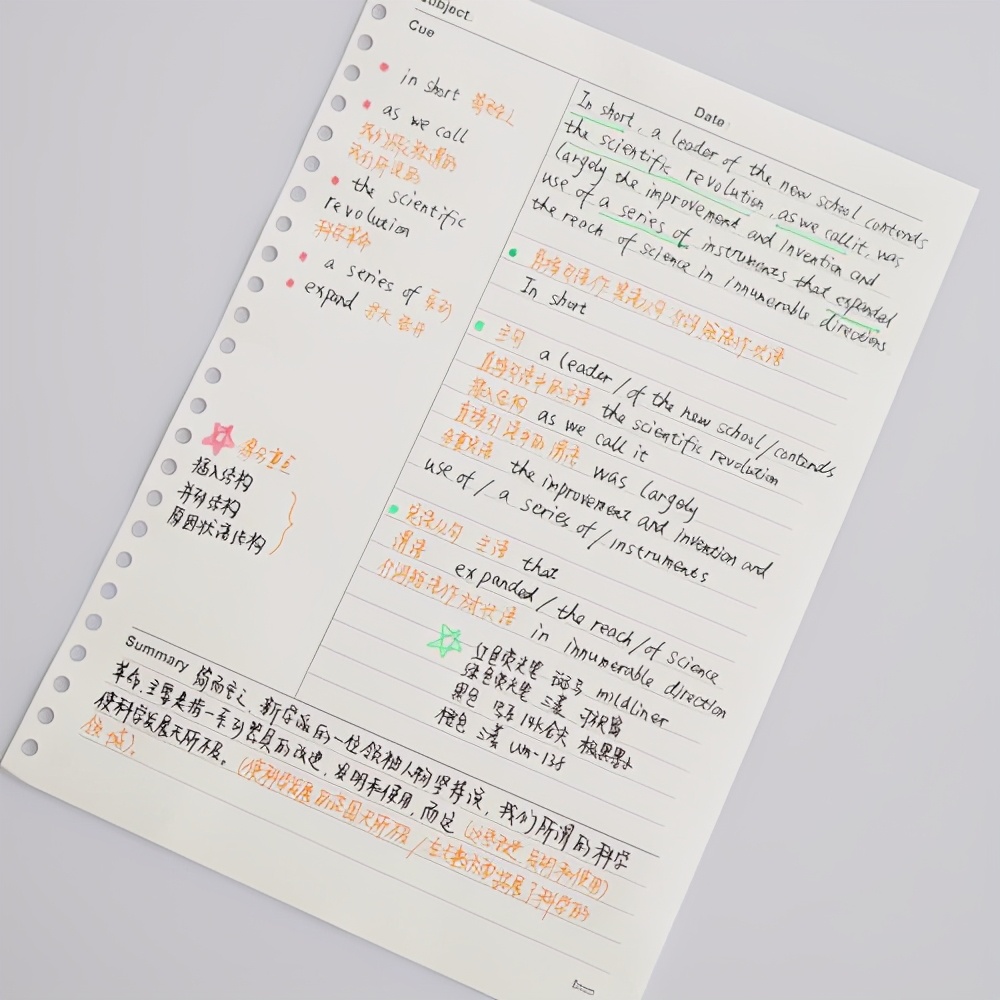 Subject
Cue
in short 简而言之
as we call
我们所称谓的
我们所说的
the scientific
revolution
科学革命
a series of 系列
expand 扩大 展开
得分重点
插入结构
并列结构
原因状语结构
Date
In short, a leader of the new school contends
the scientific revolution, as we call it, was
largely the improvement and invention and
use of a series of instruments that expanded
the reach of science in innumerable directions.
直接引语作宾语从句 介词短语作状语
In short
主句 a leader/of the new school/contends
直接引语中的主语 the scientific revolution
插入结构 as we call it
直接引语中的谓语 was largely
the improvement and invention and
use of/a series of/instruments
定语从句 主语 that
谓语 expanded/the reach/of science
介词短语作状语 in innumerable direction
红色荧光笔 斑马 mildliner
绿色荧光笔 三菱 可视窗
黑色 14K
橙色 三菱 um-138
Summary 简而言之, 新学派的一位领袖人物坚持说, 我们所谓的科学
革命, 主要是指一系列器具的改进, 发明和使用, 而这(这些改进 发明和使用)
使科学发展无所不及。(使科学发展的范围无所不及/在无数方面拓展了科学的
领域)。